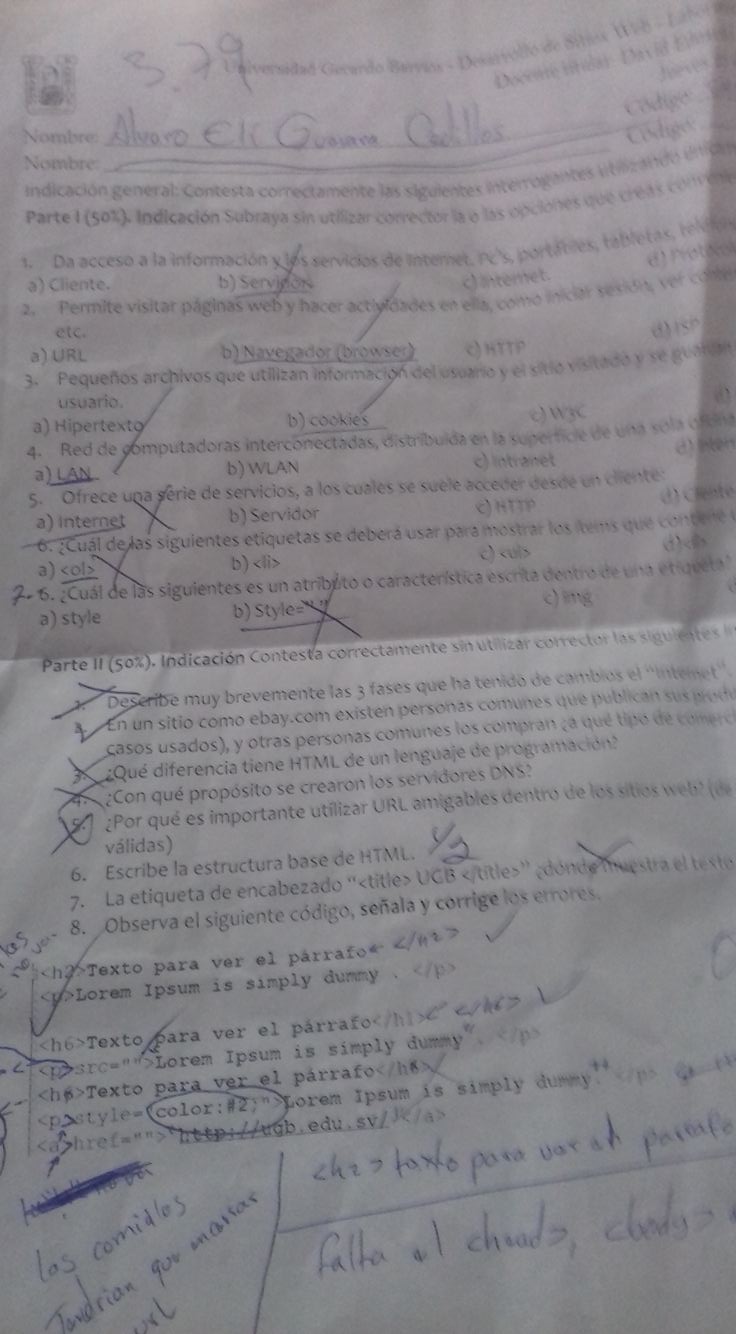 3.79
Universidad Gerardo Barrios - Desarrollo de Sitios Web -
Docente titular: David
Jueves
Nombre: Alvaro Eli Guevara Código:
Nombre: Código:
Indicación general: Contesta correctamente las siguientes interrogantes utilizando
Parte I (50%). Indicación Subraya sin utilizar corrector la o las opciones que creas
1. Da acceso a la información y los servicios de Internet. Pc's, portátiles, tabletas,
a) Cliente. b) Servidor c) Internet. d)
2. Permite visitar páginas web y hacer actividades en ella, como iniciar sesión, ver
etc.
a) URL b) Navegador (browser) c) HTTP d) ISP
3. Pequeños archivos que utilizan información del usuario y el sitio visitado y se guardan
usuario.
a) Hipertexto b) cookies c) W3C d)
4. Red de computadoras interconectadas, distribuida en la superficie de una sola oficina
a) LAN b) WLAN c) Intranet d)
5. Ofrece una serie de servicios, a los cuales se suele acceder desde un cliente:
a) Internet b) Servidor c) HTTP d) Cliente
6. ¿Cuál de las siguientes etiquetas se deberá usar para mostrar los ítems que contiene
a) <ol> b) <li> c) <ul> d)
7. 6. ¿Cuál de las siguientes es un atributo o característica escrita dentro de una etiqueta?
a) style b) Style=" " c) img
Parte II (50%). Indicación Contesta correctamente sin utilizar corrector las siguientes
1. Describe muy brevemente las 3 fases que ha tenido de cambios el "Internet".
2. En un sitio como ebay.com existen personas comunes que publican sus
casos usados), y otras personas comunes los compran ¿a qué tipo de
3. ¿Qué diferencia tiene HTML de un lenguaje de programación?
4. ¿Con qué propósito se crearon los servidores DNS?
5. ¿Por qué es importante utilizar URL amigables dentro de los sitios web? (de
válidas)
6. Escribe la estructura base de HTML. 1/2
7. La etiqueta de encabezado "<title> UGB </title>" ¿dónde muestra el texto
8. Observa el siguiente código, señala y corrige los errores.
<h2>Texto para ver el párrafo </h2>
<p>Lorem Ipsum is simply dummy . </p>
<h6>Texto para ver el párrafo</h1> </h6>
<p>src="">Lorem Ipsum is simply dummy . </p>
<h6>Texto para ver el párrafo</h6>
<p>style="color:#2;">Lorem Ipsum is simply dummy. </p>
<a>href="">http://ugb.edu.sv/</a>
<h2> texto para ver el parrafo
falta el <head>, <body>
las comillas
Tendrian que encerrar
url